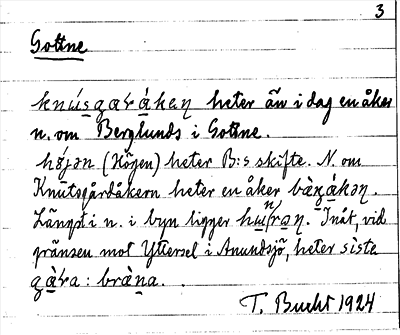 3
Gottne
knúsgarákeṇ heter än i dag en åker
n. om Berglunds i Gottne.
hǿjən (Höjen) heter B:s skifte. N. om
Knutsgårdåkern heter en åker bàgákəṇ.
Längst i n. i byn ligger Inåt, vid
gränsen mot Yttersel i Anundsjö, heter siste
gàra : bràna.
T. Bucht 1924